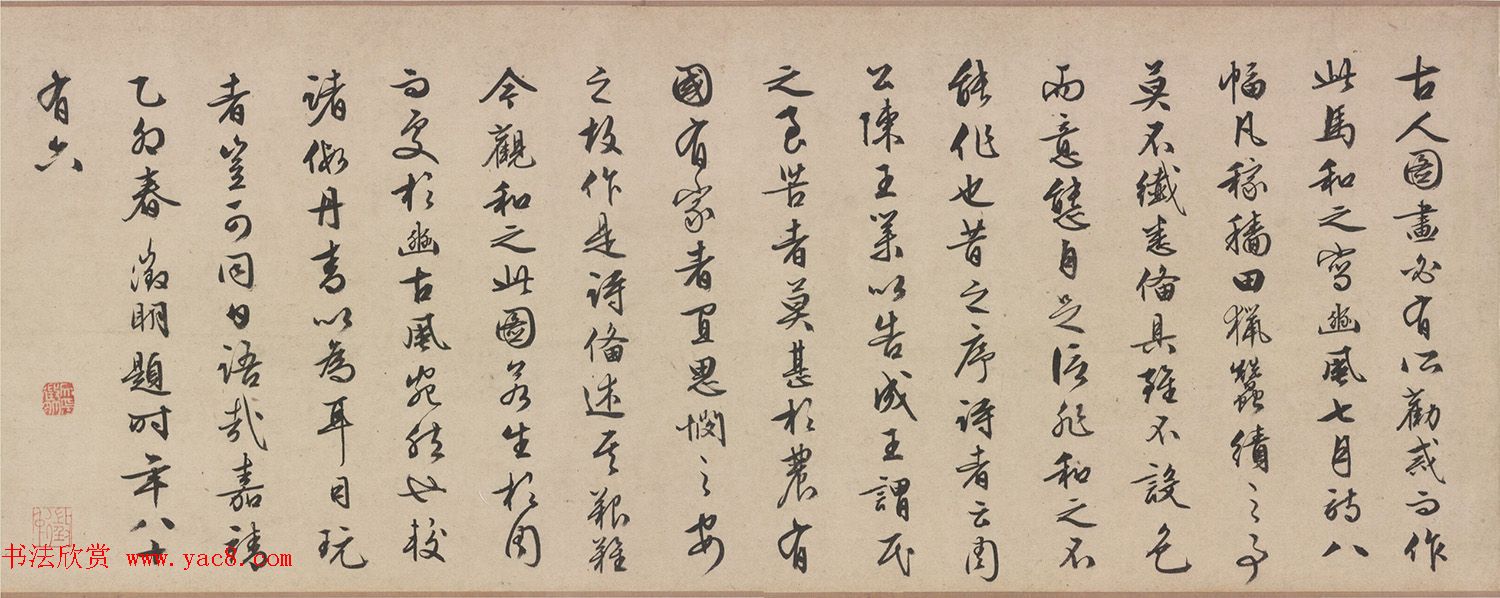 古人圖畫必有所勸戒而作
此馬和之寫豳風七月詩八
幅凡稼穡田獵蠶績之事
莫不纖悉備具雖不設色
而意態自足信非和之不
能作也昔之序詩者云周
公陳王業以告成王謂民
之至苦者莫甚於農有
國有家者宜思憫之安
之故作是詩備述其艱難
今觀和之此圖若生於周
而處於豳古風宛然也校
諸假丹青以為耳目玩
者豈可同日語哉嘉靖
乙卯春徵明題時年八十
有六
书法欣赏 www.yac8.com